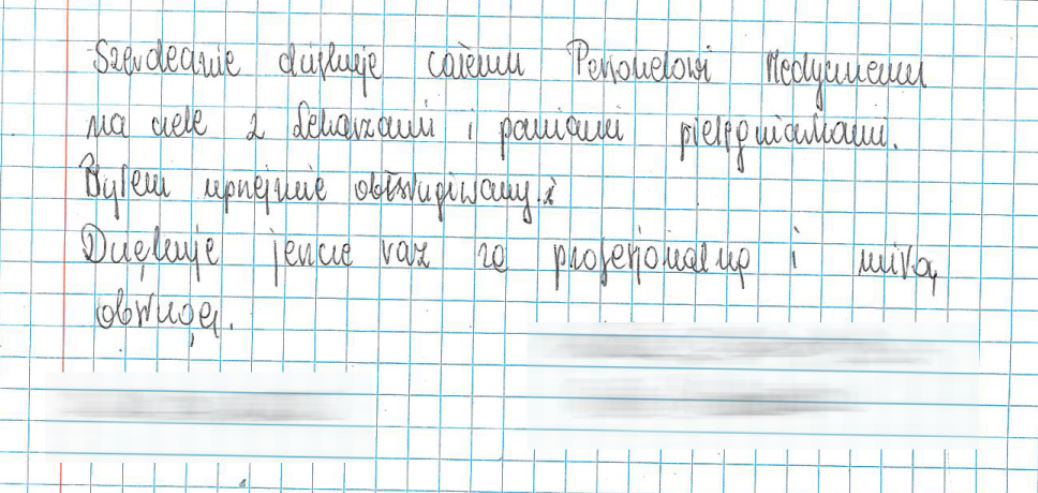 Serdecznie dziękuję całemu Personelowi Medycznemu
na czele z Lekarzami i paniami pielęgniarkami.
Byłem uprzejmie obsługiwany.
Dziękuję jeszcze raz za profesjonalną i miłą
obsługę.